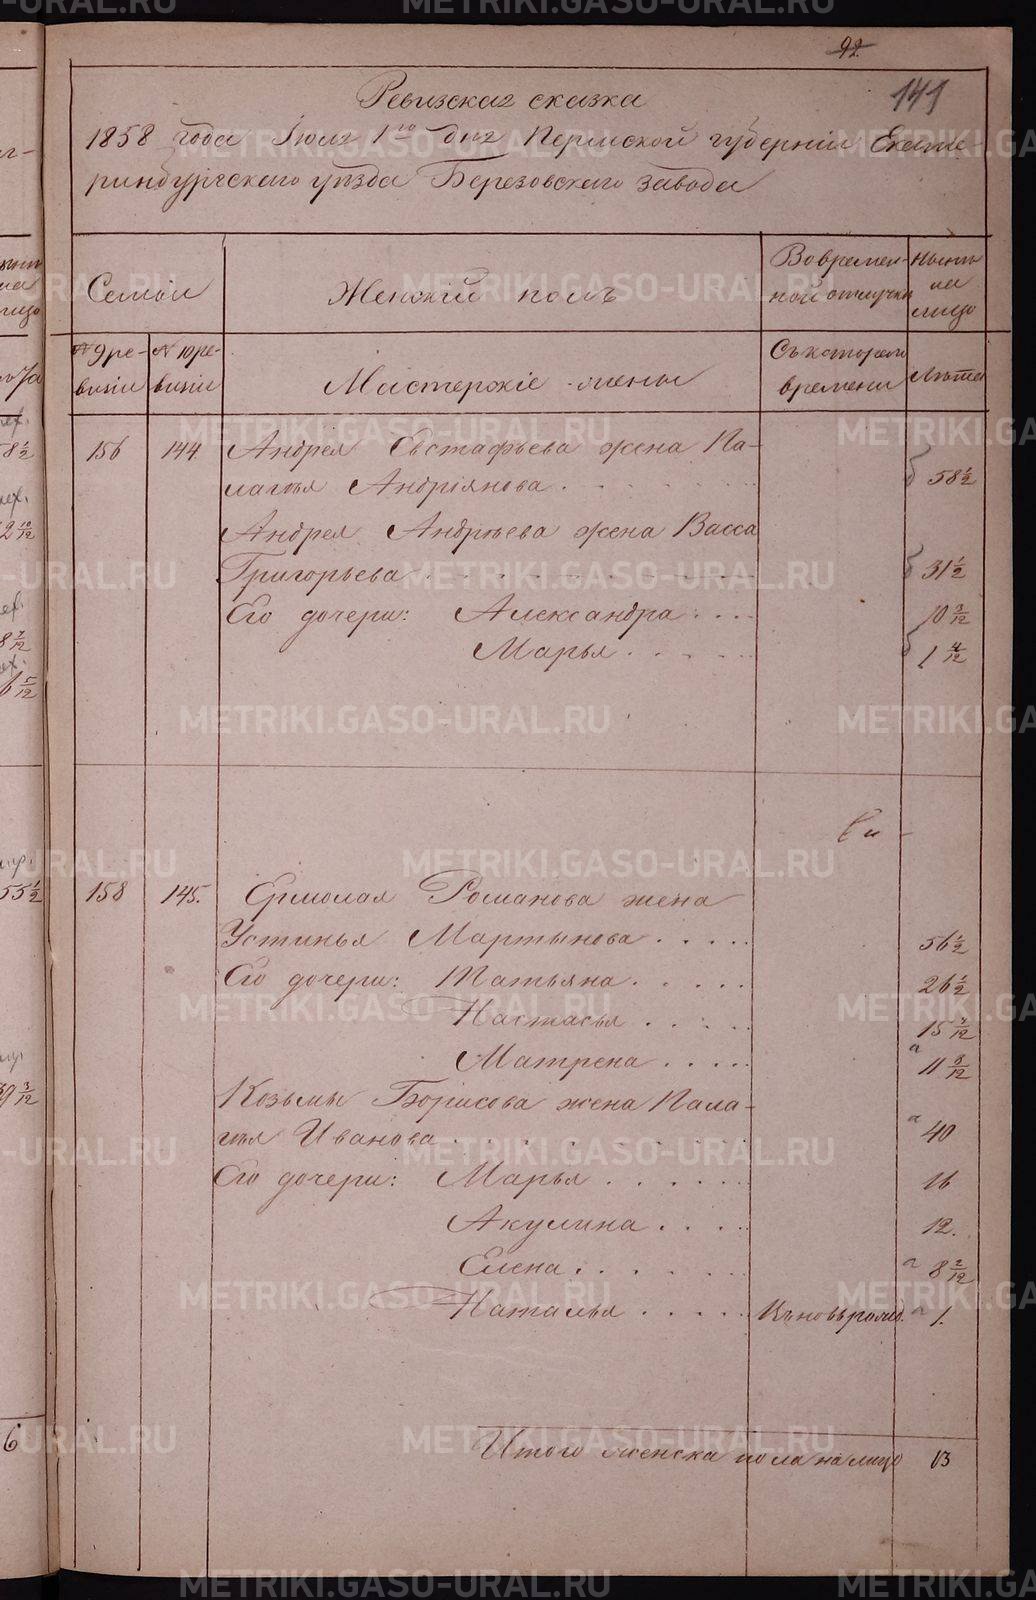 92.
141
Ревизская сказка
1858 года Iюля 1го дня Пермской губернiи Екате-
ринбургскаго уѣзда Березовскаго завода
Семьи
Женскiй полъ
Вовремен-
ной отлучкѣ
Нынѣ
на
лицо
№ 9 ре-
визiи
№ 10 ре-
визiи
Мастерскiе жены
Съ котораго
времени
Лѣта
156 144. Андрея Евстафьева жена Па-
лагѣя Андрiянова 58 1/2
Андрея Андрѣева жена Васса
Григорьева 31 1/2
Его дочери: Александра 10 3/12
Марья 1 4/12
158 145. Ермолая Романова жена
Устинья Мартынова 56 1/2
Его дочери: Татьяна 26 1/2
Настасья 15
Матрена 11 8/12
Козьмы Борисова жена Пала-
гѣя Иванова 40
Его дочери: Марья 16
Акулина 12.
Елена 8 2/12
Наталья 1.
Итого женска пола на лицо 13
METRIKI.GASO-URAL.RU